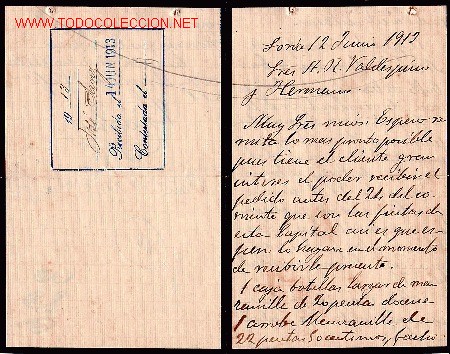 www.TODOCOLECCION.NET
19 13
Recibida el 14 JUN 1913
Contestada el
Soria 12 Junio 1913
Sres H. U. Valdespino
y Hermano.
Muy Sres mios: Espero re-
mita lo mas pronto posible
pues tiene el cliente gran
interes el poder recibir el
pedido antes del 24 del co-
rriente que son las fiestas de
esta Capital asi es que es-
pero lo hagan en el momento
de recibir la presente.
1 caja botellas largas de man-
zanilla de 20 pesetas docena
1 arroba Manzanilla de
22 pesetas 50 centimos,